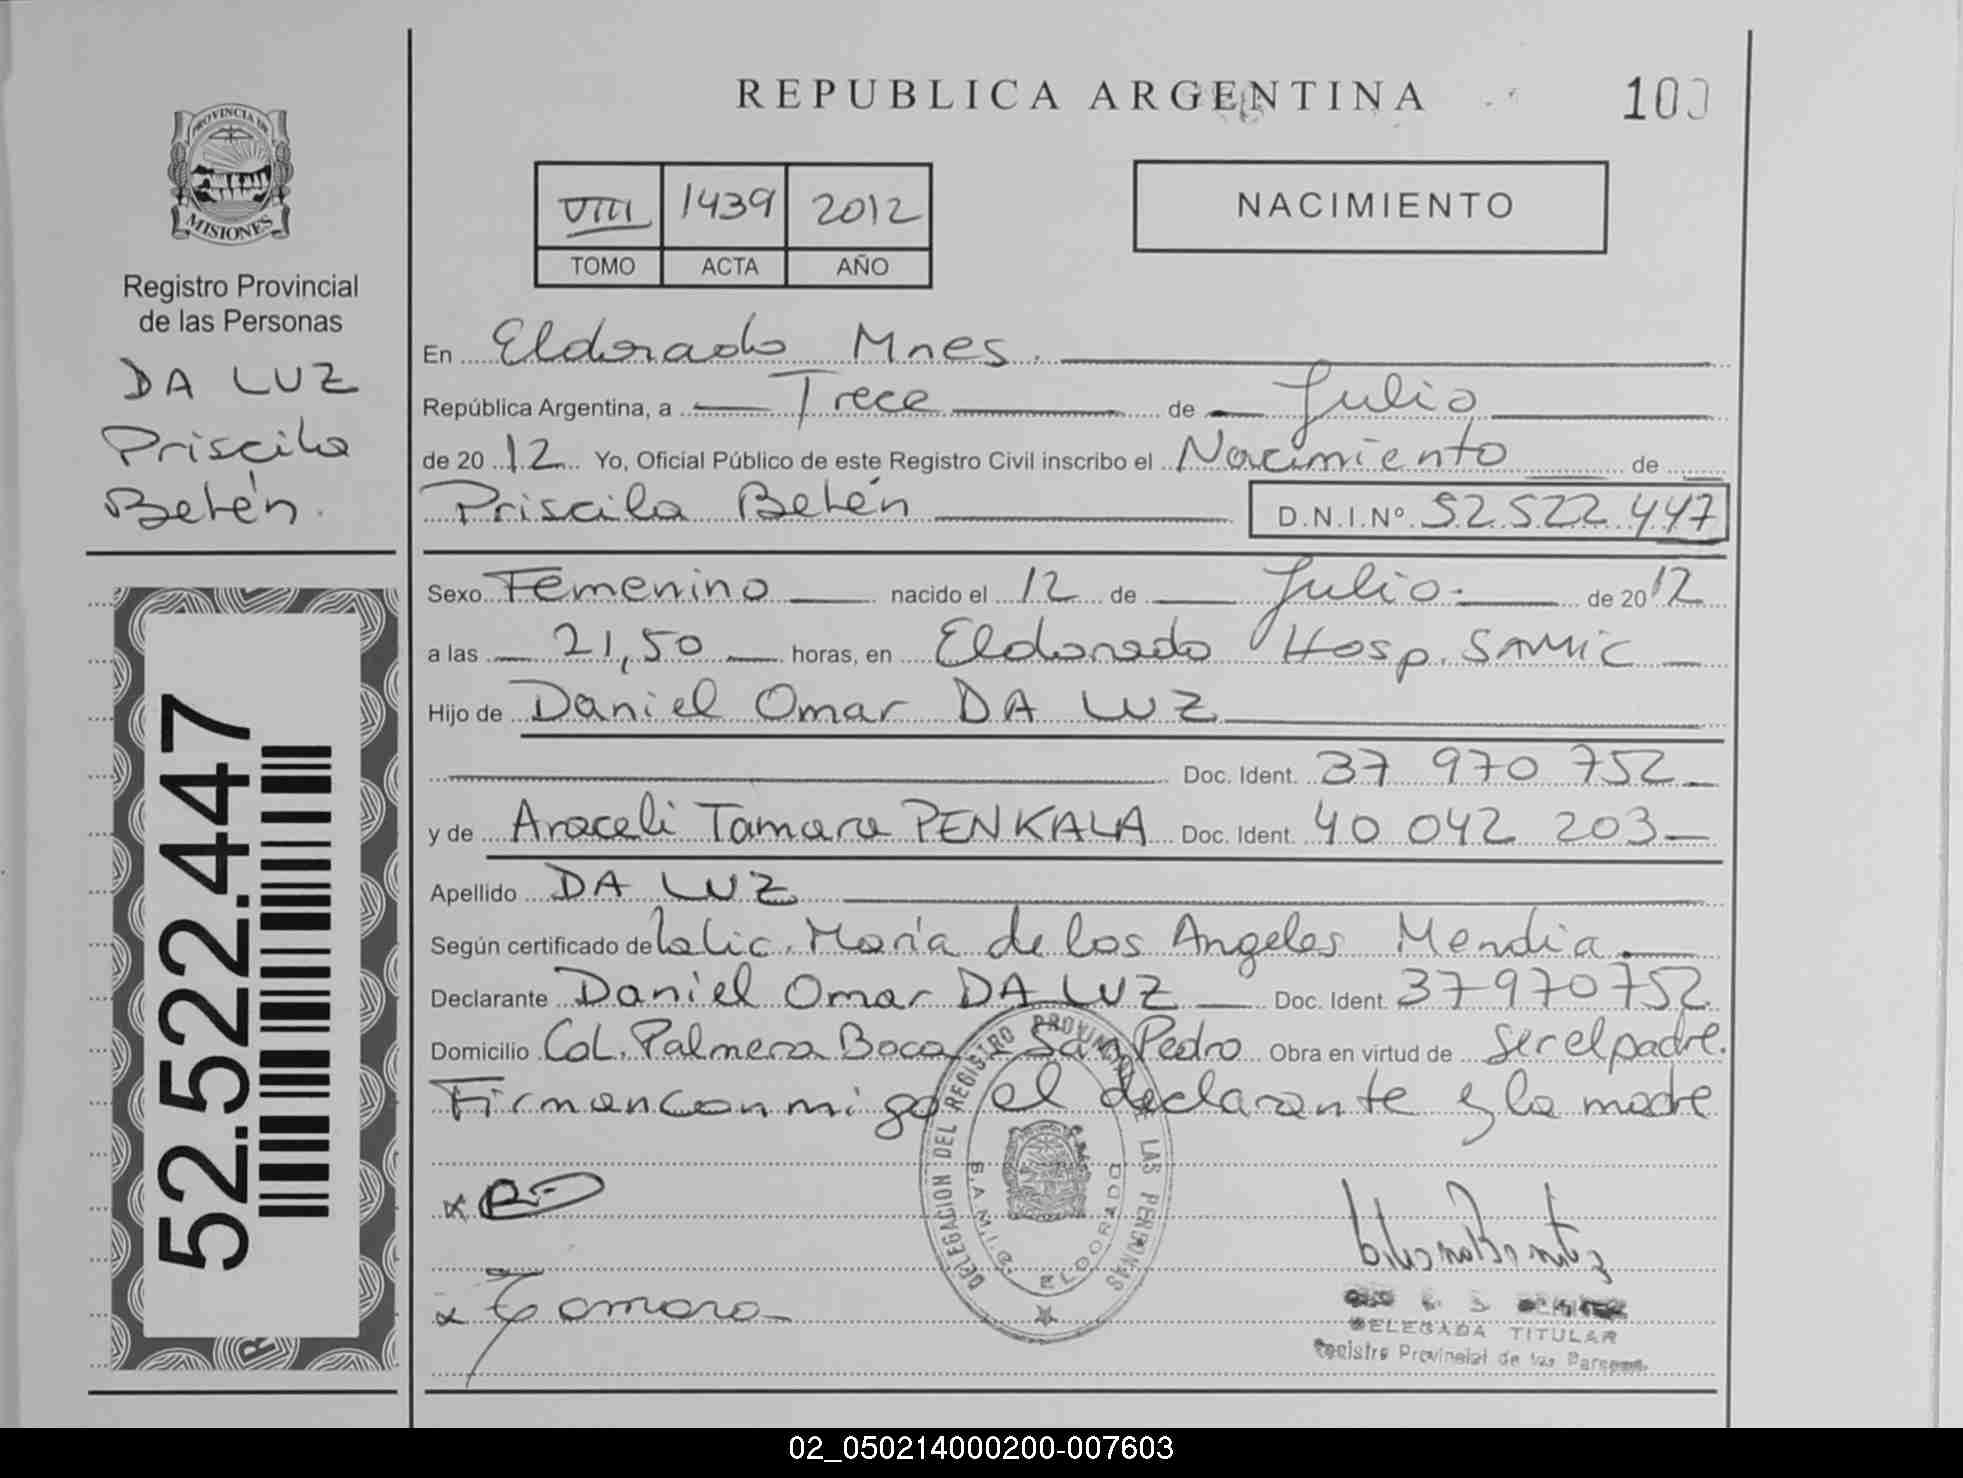 REPUBLICA ARGENTINA
100
PROVINCIA DE
MISIONES
Registro Provincial
de las Personas
DA LUZ
Priscila
Belén.
52.522.447
VIII 1439 2012
TOMO ACTA AÑO
NACIMIENTO
En Eldorado Mnes.
República Argentina, a Trece de Julio
de 20 12 Yo, Oficial Público de este Registro Civil inscribo el Nacimiento de
Priscila Belén D.N.I.Nº. 52.522.447
Sexo Femenino nacido el 12 de Julio de 2012
a las 21,50 horas, en Eldorado Hosp. SAMIC
Hijo de Daniel Omar DA LUZ
Doc. Ident. 37 970 752
y de Araceli Tamara PENKALA Doc. Ident. 40 042 203
Apellido DA LUZ
Según certificado de la Lic. María de los Angeles Mendia
Declarante Daniel Omar DA LUZ Doc. Ident. 37970752
Domicilio Col. Palmera Boca - San Pedro Obra en virtud de ser el padre.
Firman conmigo el declarante y la madre
DELEGACION DEL REGISTRO PROVINCIAL DE LAS PERSONAS
S.A.M.I.C. ELDORADO
x
x Tamara
DELEGADA TITULAR
Registro Provincial de las Personas
02_050214000200-007603